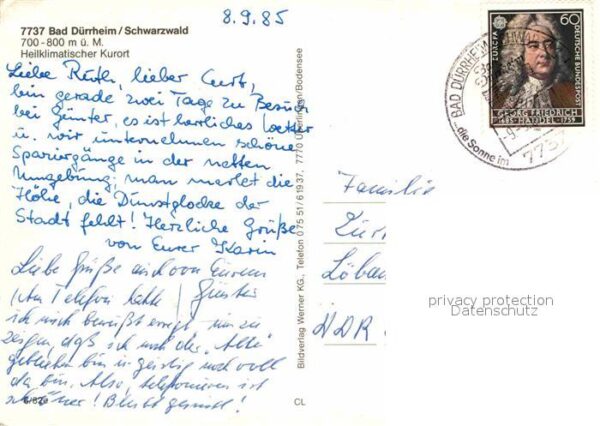 8.9.85
7737 Bad Dürrheim / Schwarzwald
700-800 m ü. M.
Heilklimatischer Kurort
Liebe Ruth, lieber Curt,
bin gerade zwei Tage zu Besuch
bei Günter, es ist herrliches Wetter
u. wir unternehmen schöne
Spaziergänge in der netten
Umgebung; man merkt die
Höhe, die Dunstglocke der
Stadt fehlt! Herzliche Grüße
von Eurer Karin
Liebe Grüße auch von Eurem
(Am Telefon hatte Günter
ich mich bewußt erregt, um zu
zeigen, daß ich noch der "Alte"
geblieben bin u. geistig noch voll
da bin. Also, telefonieren ist
schöner! Bleibt gesund!
6/829
CL
Bildverlag Werner KG., Telefon 0 75 51/6 19 37, 7770 Überlingen/Bodensee
EUROPA
60
DEUTSCHE BUNDESPOST
GEORG FRIEDRICH
1685 HÄNDEL 1759
BAD DÜRRHEIM
...die Sonne im
7737
Familie
Löbau
DDR
privacy protection
Datenschutz